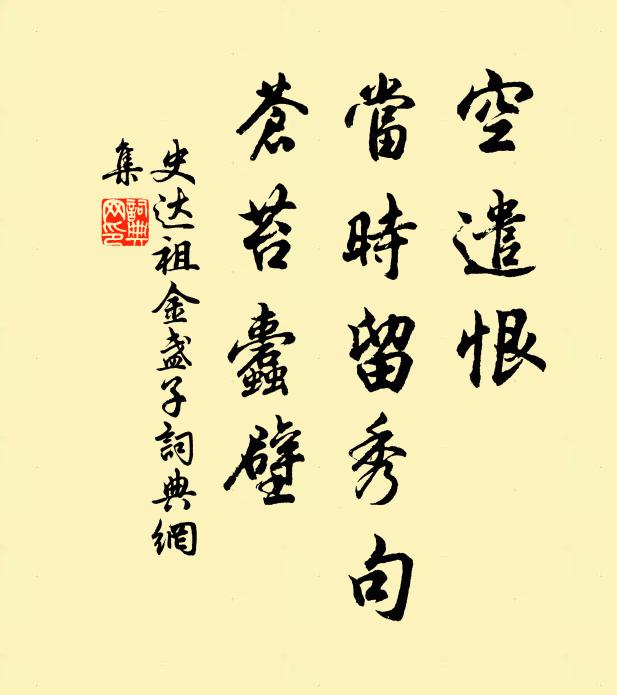 空遣恨
當時留秀句
蒼苔蠹壁
史达祖金盏子詞典網
集
詞典網印